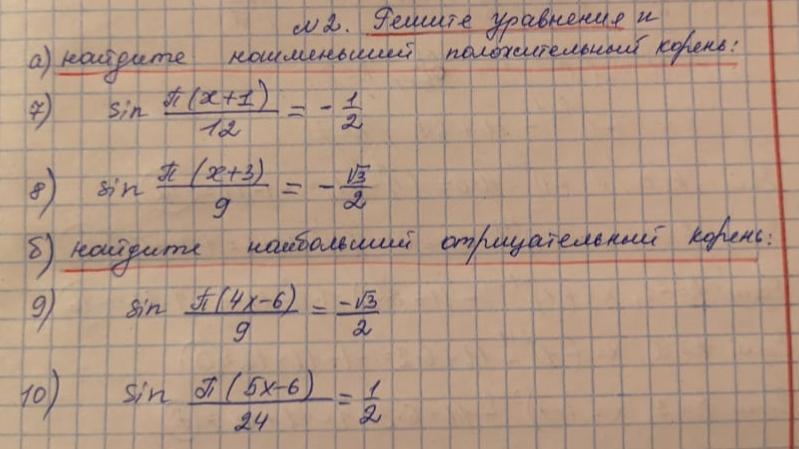 №2. Решите уравнения и
а) найдите наименьший положительный корень:
7) sin π(x+1)/12 = -1/2
8) sin π(x+3)/9 = -√3/2
б) найдите наибольший отрицательный корень:
9) sin π(4x-6)/9 = -√3/2
10) sin π(5x-6)/24 = 1/2